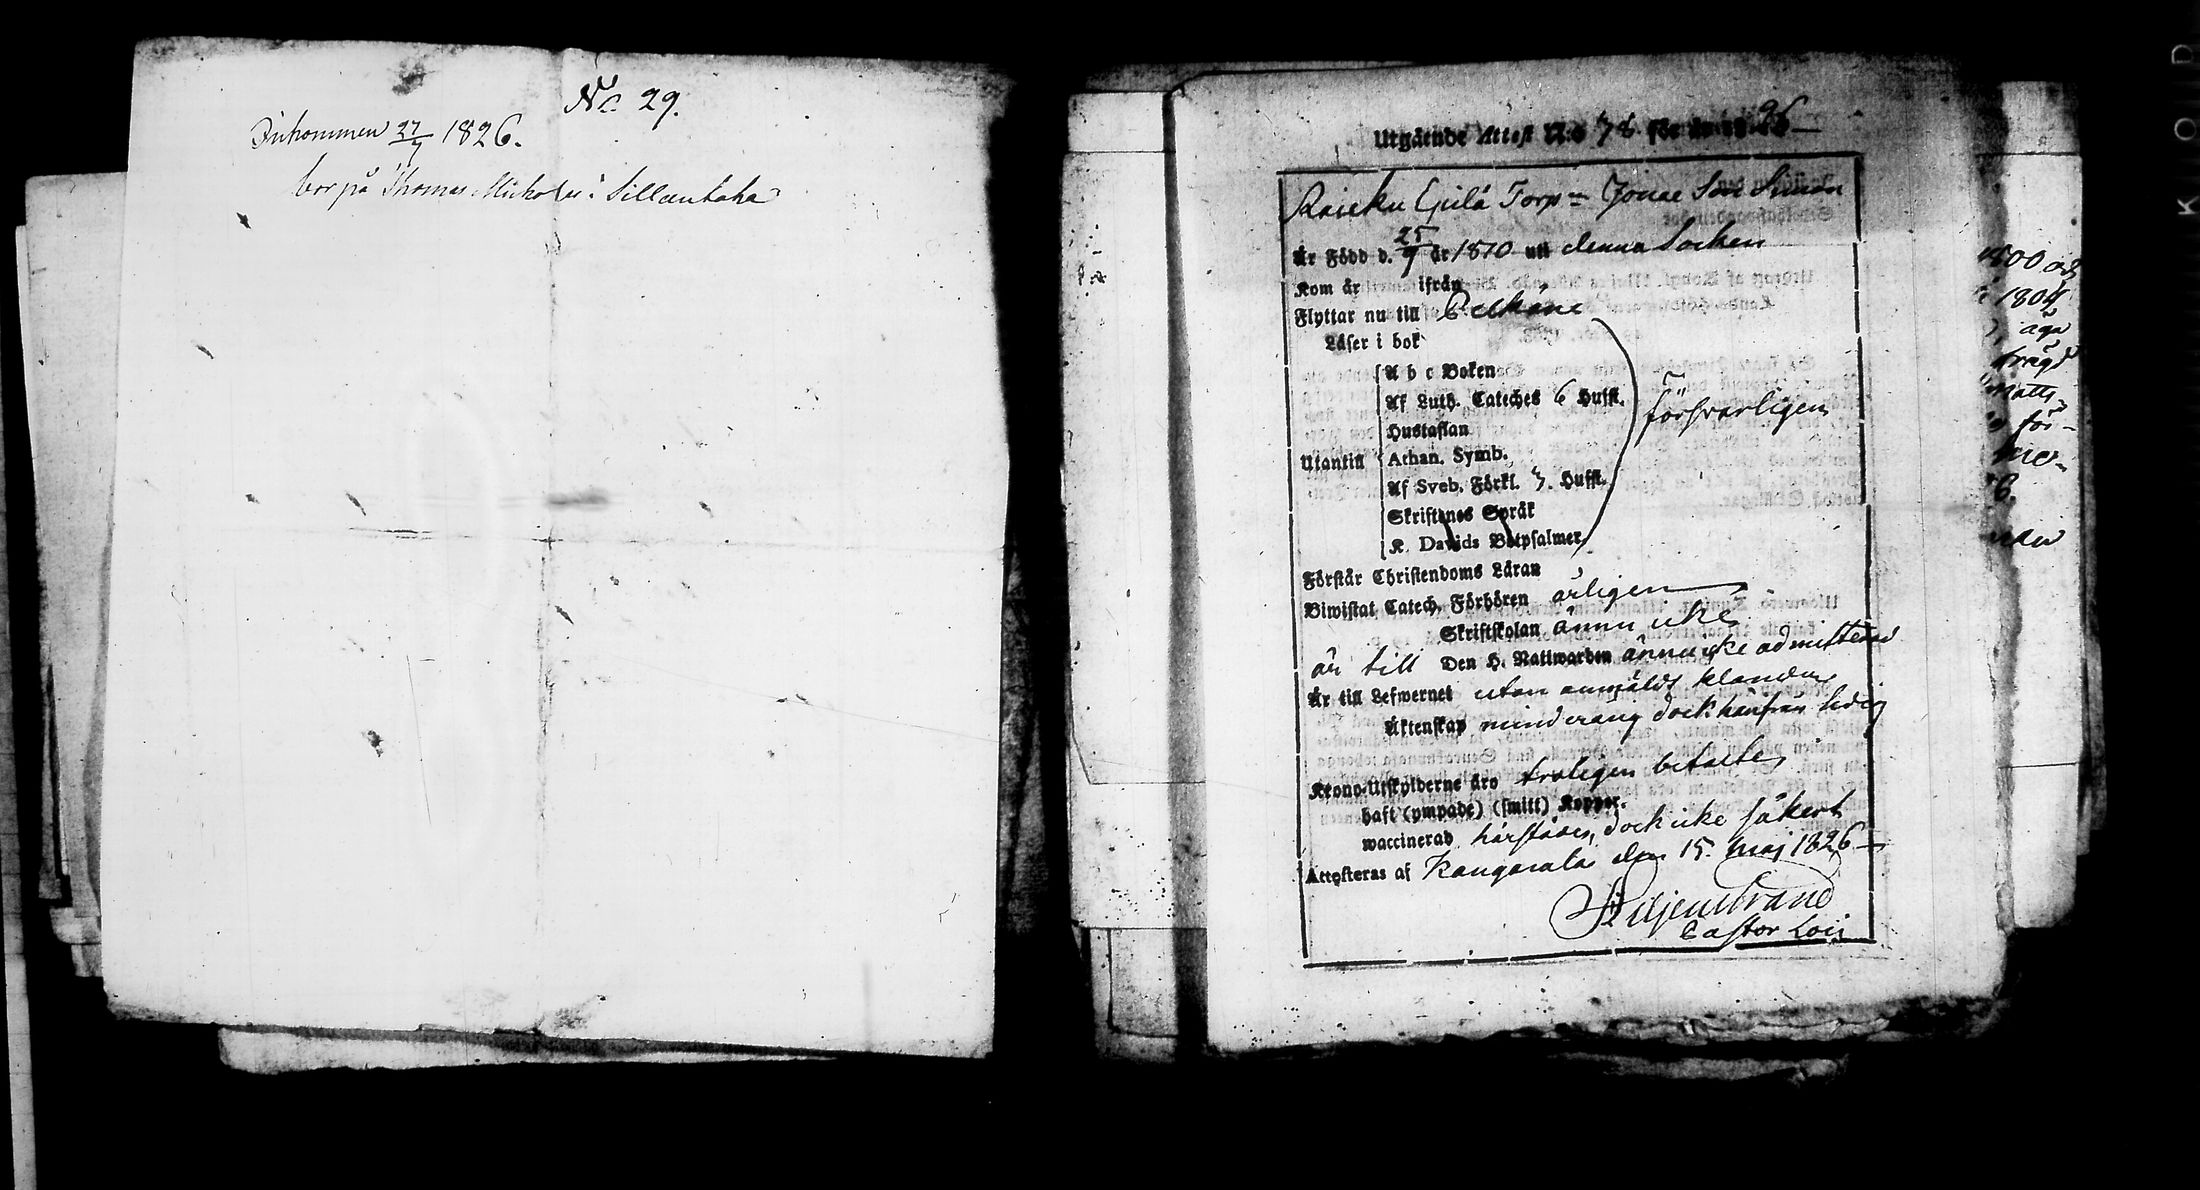 No 29.
Inkommen 27/7 1826.
bor på Thomas Michols i Sillantaka
Utgående Attest N:o 78 för år 1826
Raikku Torp= Jonae Son Simon
Är Född d. 25/9 år 1810 uti denna Socken
Kom år ifrån
Flyttar nu till Pelkäne
Läser i bok
A b c Boken
Af Luth. Cateches 6 Hufst.
försvarligen
Hustaflan
Utantill Athan. Symb.
Af Sveb. Förkl. 3. Hufst.
Skriftenes Språk
K. Davids Botpsalmer.
Förstår Christendoms Läran
Biwistat Catech. Förhören årligen
Skriftskolan ännu icke
är till Den H. Nattwarden ännu icke admitterad
Är till Lefwernet utan anmäldt klander
Äktenskap minderårig dock härifrån ledig
Krono-Utskylderne äro troligen betalte
haft (ympade) (smitt) Koppor.
waccinerad dock icke säkert
Attesteras af Kangasala den 15. Maj 1826
Liljenstrand
Pastor Loci
1800
1804
äga
för-
6.